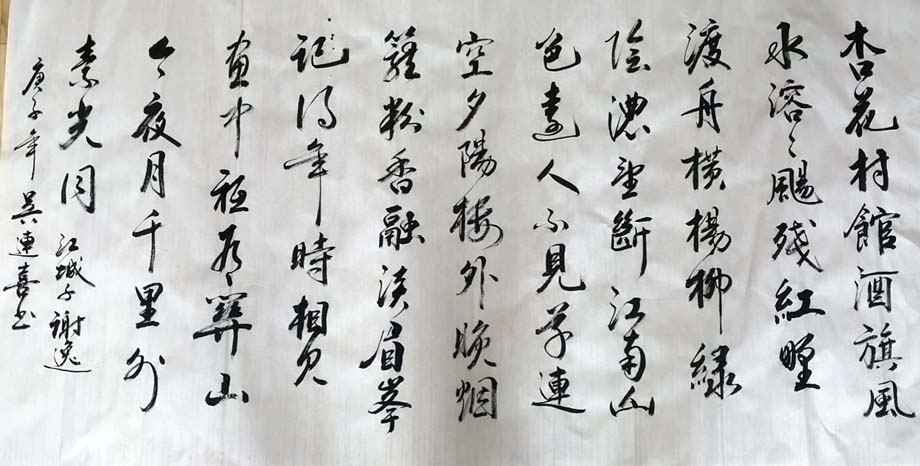 杏花村館酒旗風
水溶〻颺殘紅野
渡舟橫楊柳綠
陰濃望斷江南山
色遠人不見草連
空夕陽樓外晚烟
籠粉香融淡眉峯
記得年時相見
畫中秪有關山
今夜月千里外
素光同 江城子謝逸
庚子年 吳連喜書